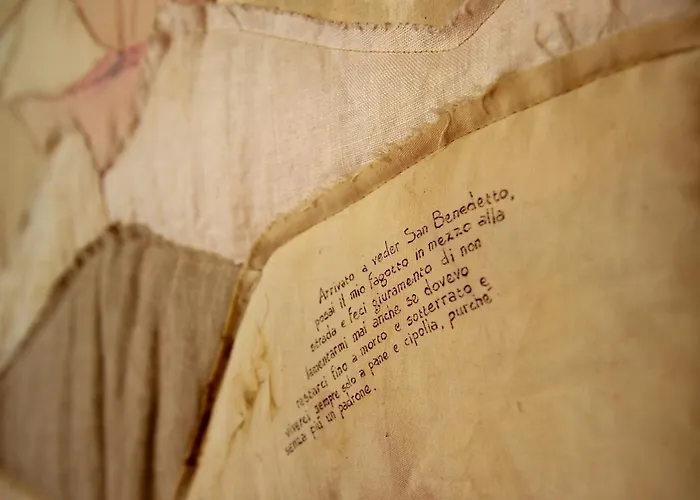 Arrivato a veder San Benedetto,
posai il mio fagotto in mezzo alla
strada e feci giuramento di non
lamentarmi mai anche se dovevo
restarci fino a morto e sotterrato e
viverci sempre solo a pane e cipolla, purchè
senza più un padrone.